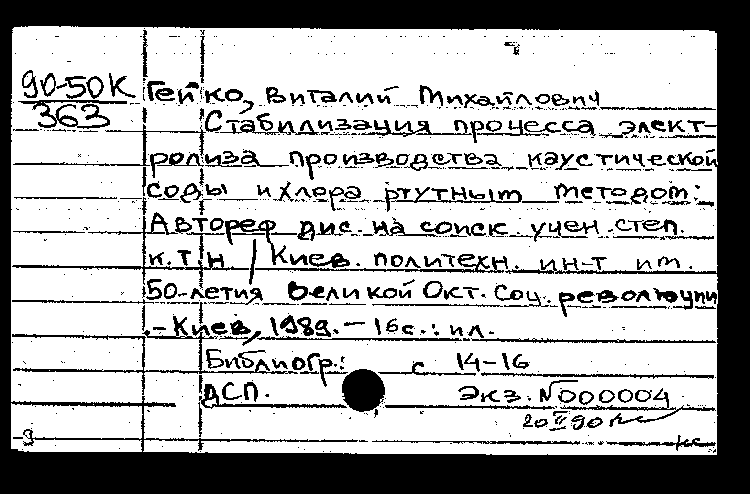 90-50К
363
Гейко, Виталий Михайлович
Стабилизация процесса элект-
ролиза производства каустической
соды и хлора ртутным методом:
Автореф дис. на соиск учен. степ.
к.т.н / Киев. политехн. ин-т им.
50-летия Великой Окт. Соц. революции
.-Киев, 1989.- 16с.: ил.
Библиогр.: с 14-16
ДСП. Экз. №000004
20 II 90